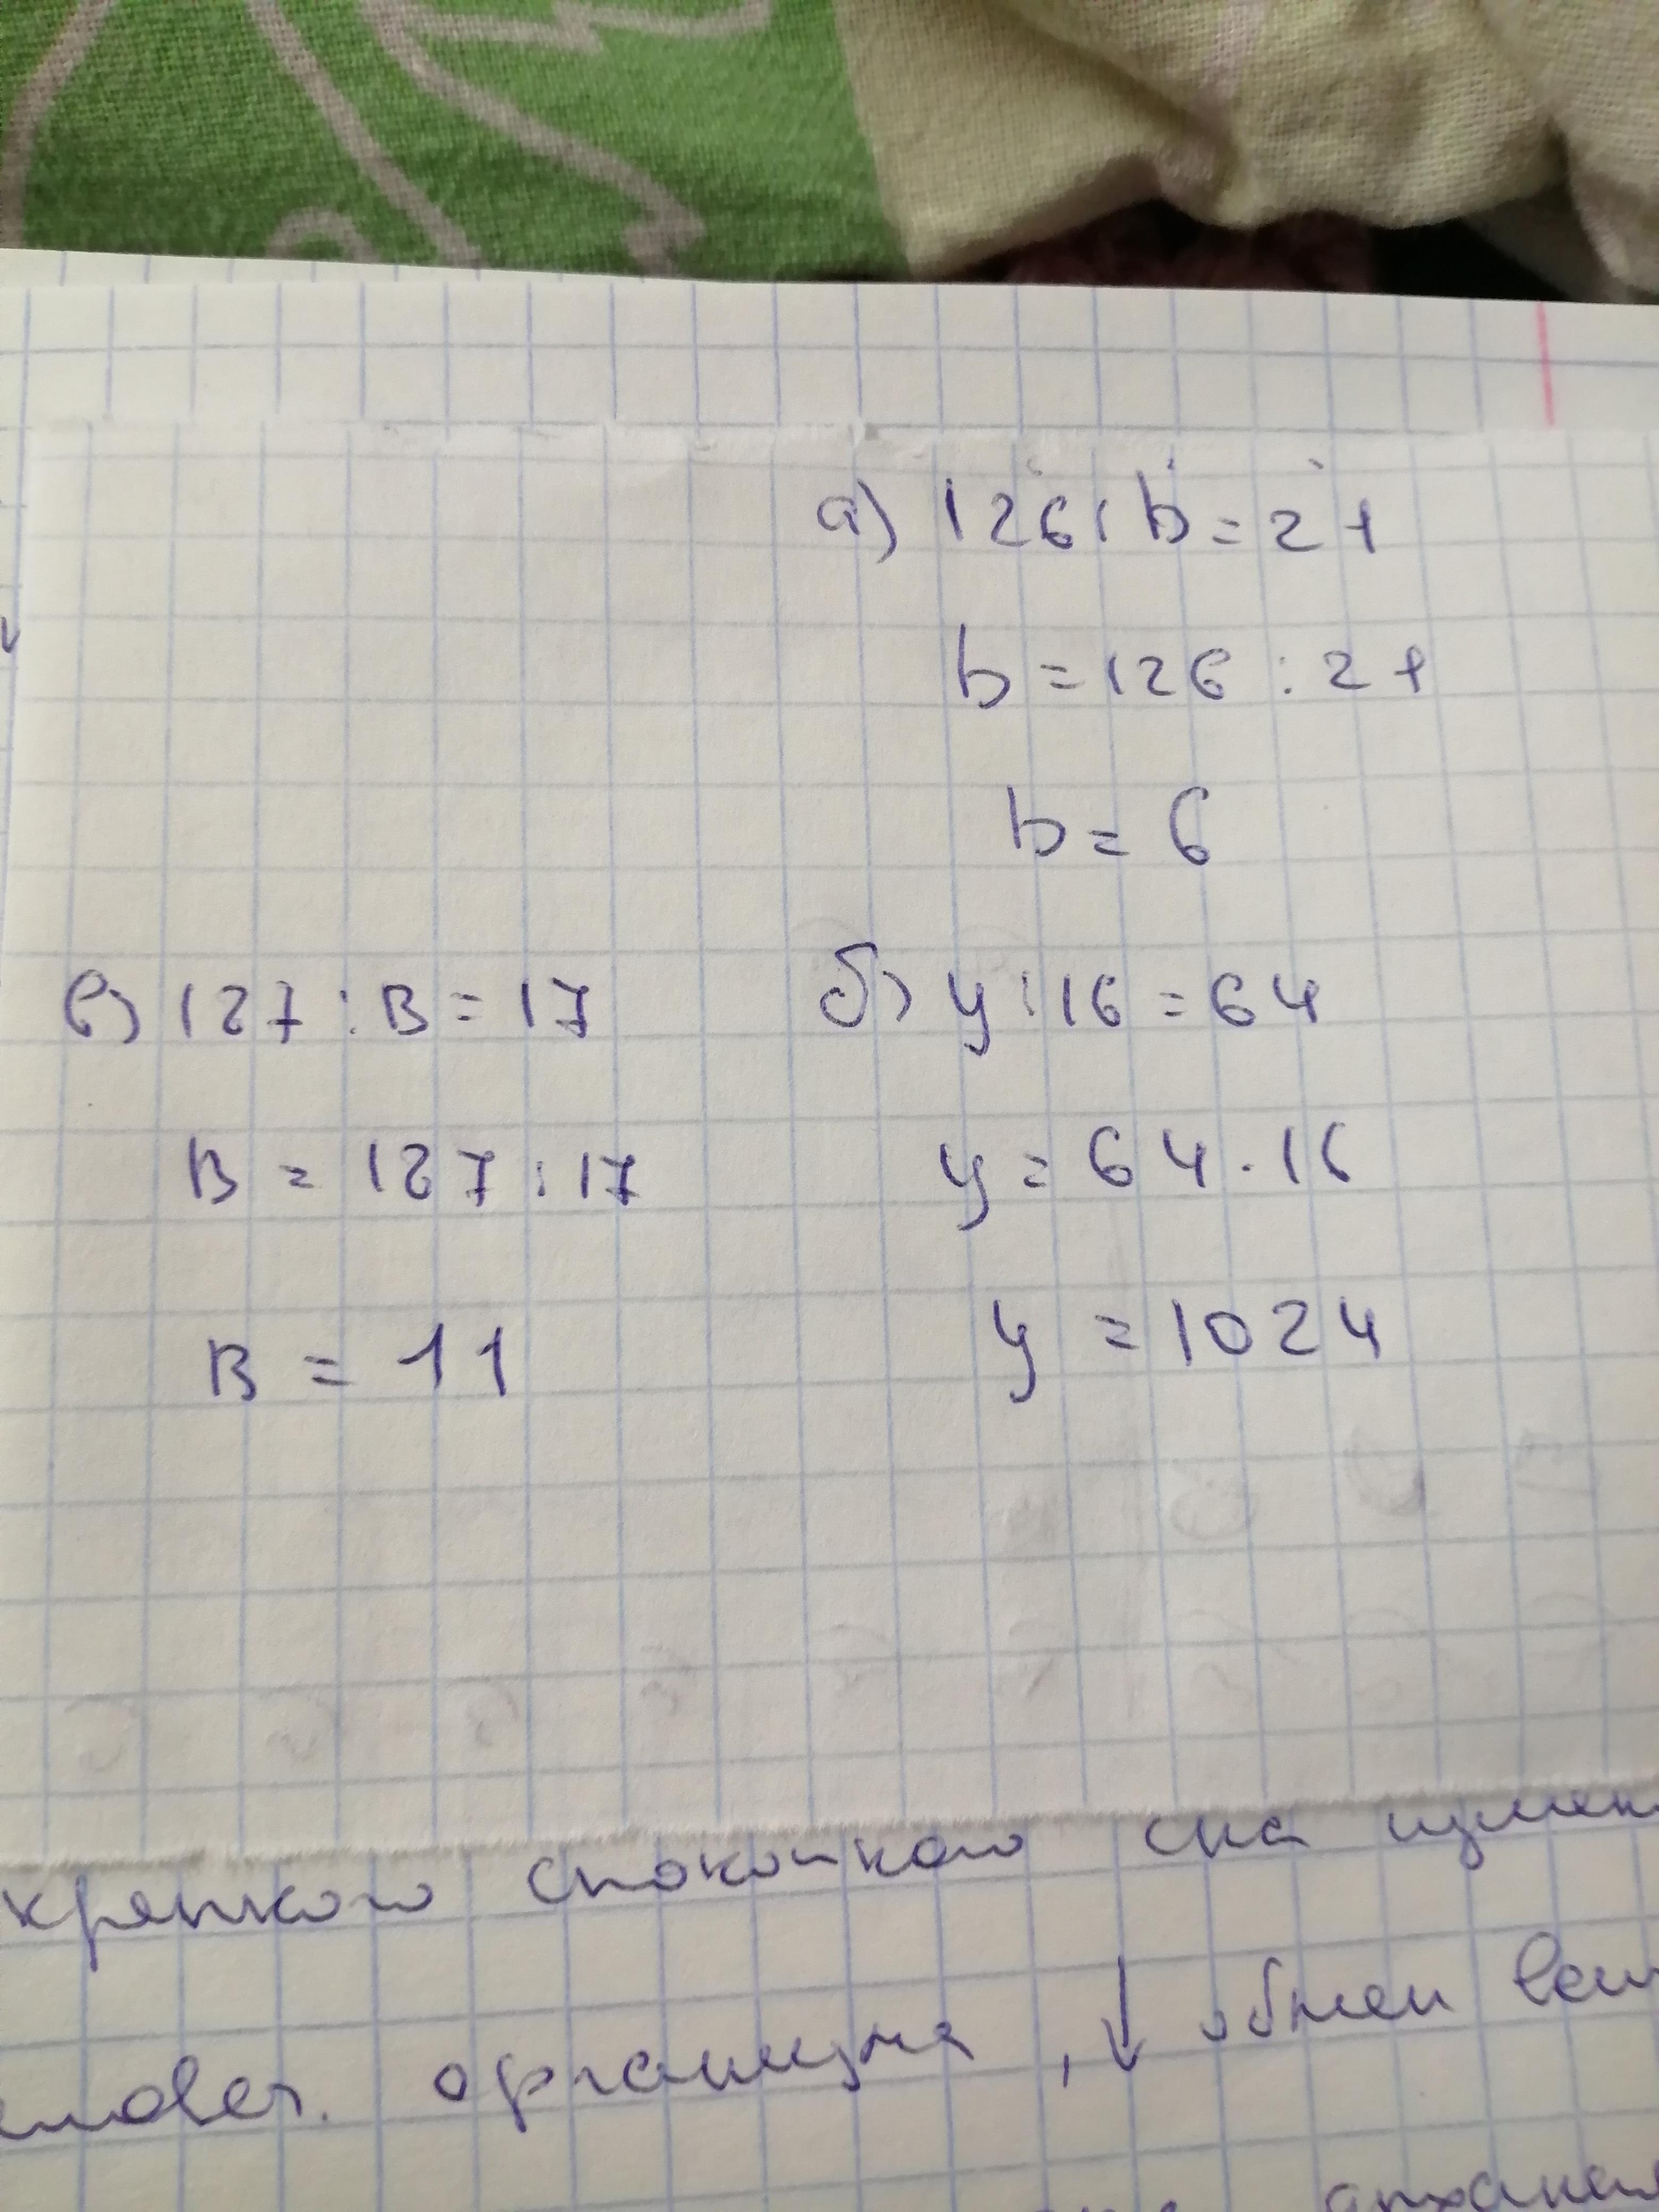 а) 126 : b = 21
b = 126 : 21
b = 6
в) 127 : B = 17
B = 127 : 17
B = 11
б) y : 16 = 64
y = 64 · 16
y = 1024
крепкого спокойного сна
организма, ↓ обмен